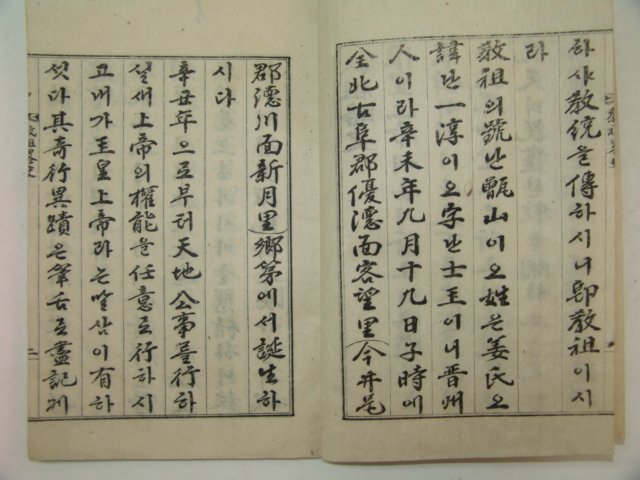 하사 敎統을 傳하시니 卽敎祖이시
라
敎祖의 號난 甑山이오 姓은 姜氏오
諱난 一淳이오 字난 士玉이니 晋州
人이라 辛未年九月十九日子時에
全北古阜郡優德面客望里(今井邑
郡德川面新月里)鄕第에서 誕生하
시다
辛丑年으로부터 天地公事를 行하
실새 上帝의 權能을 任意로 行하시
고 내가 玉皇上帝라는 말삼이 有하
셧다 其奇行異蹟은 筆舌로 盡記케